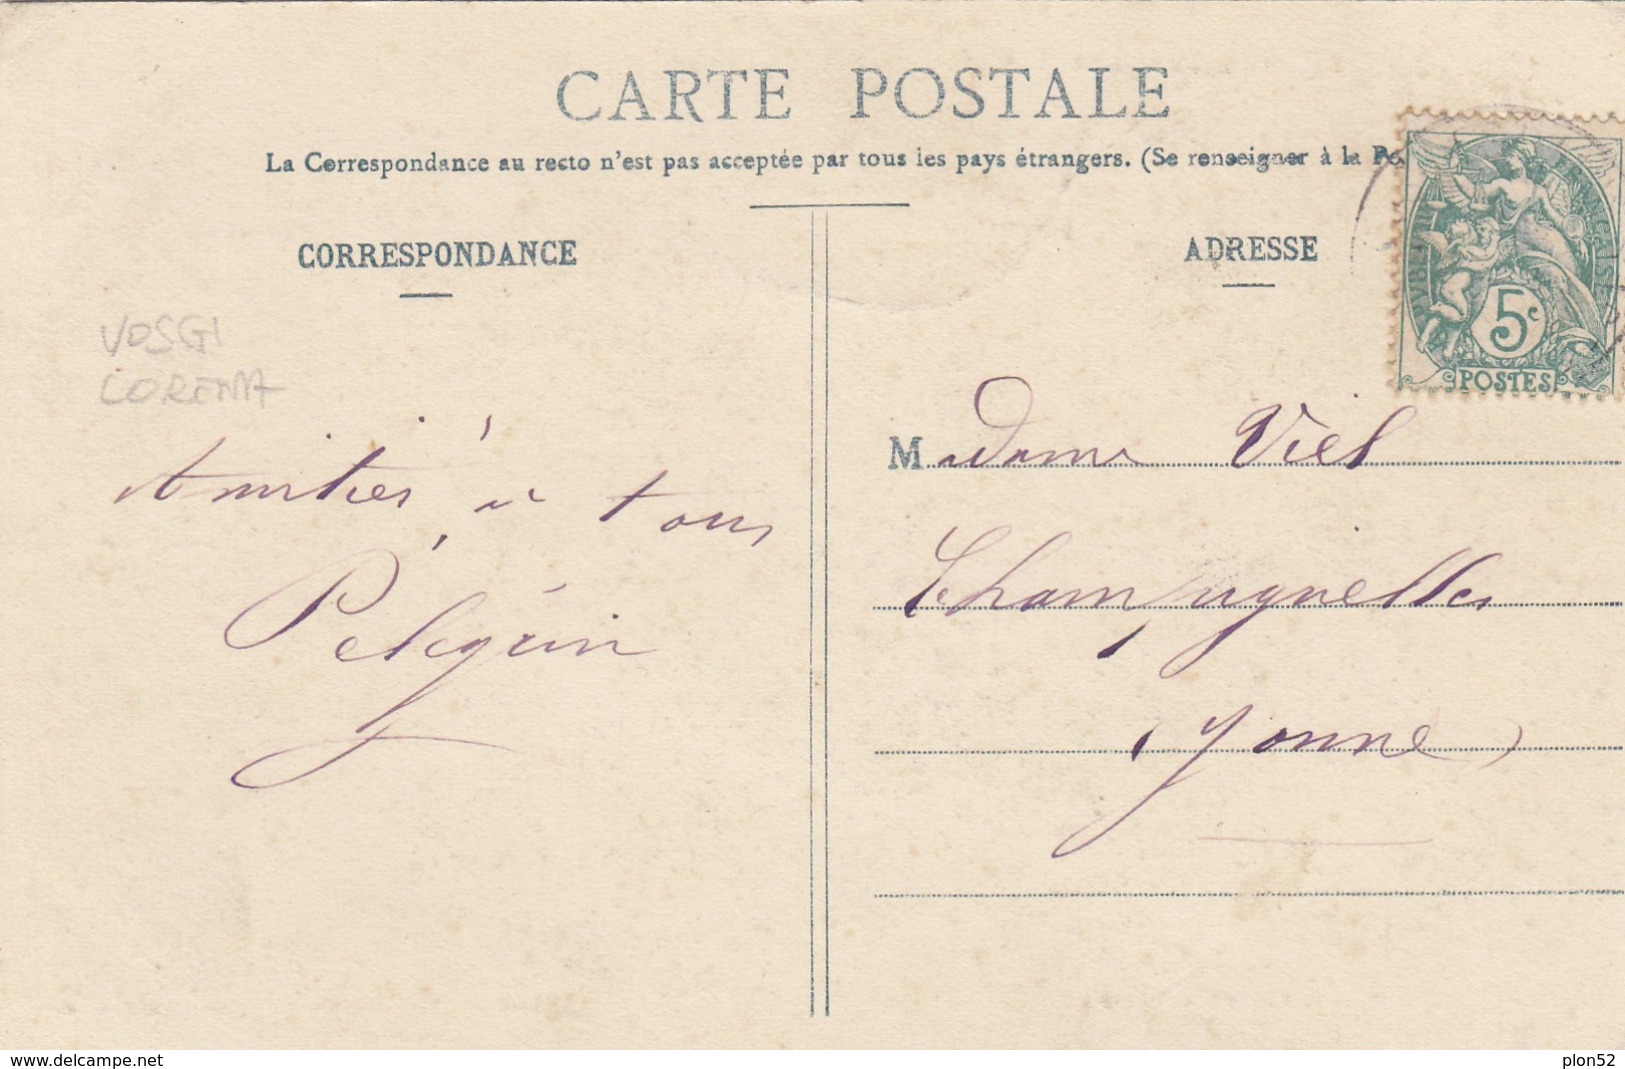 CARTE POSTALE
La Correspondance au recto n'est pas acceptée par tous les pays étrangers. (Se renseigner à la Po
CORRESPONDANCE
ADRESSE
5c
POSTES
VOSGI
LORENA
Amitiés à tous
Pelegrin
Madame Viel
Champignelles
(Yonne)
www.delcampe.net
plon52